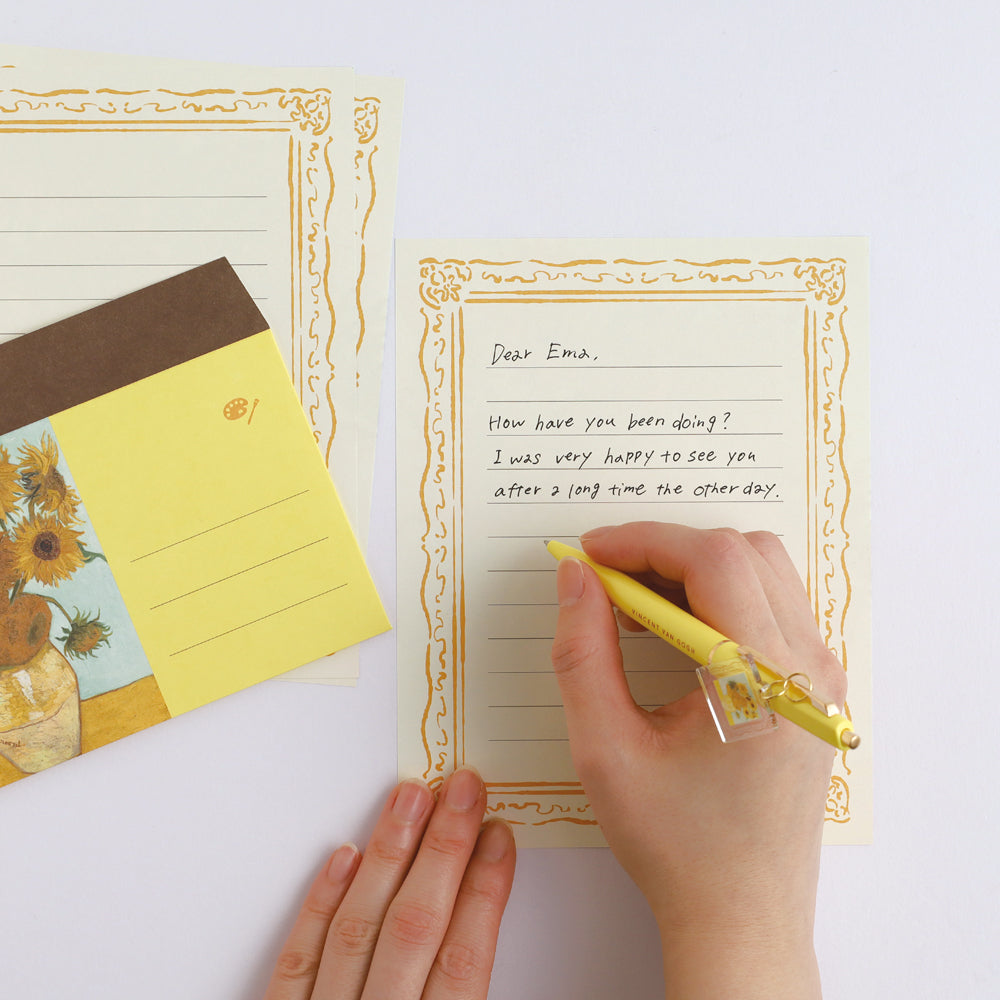 Dear Ema,
How have you been doing?
I was very happy to see you
after a long time the other day.
VINCENT VAN GOGH